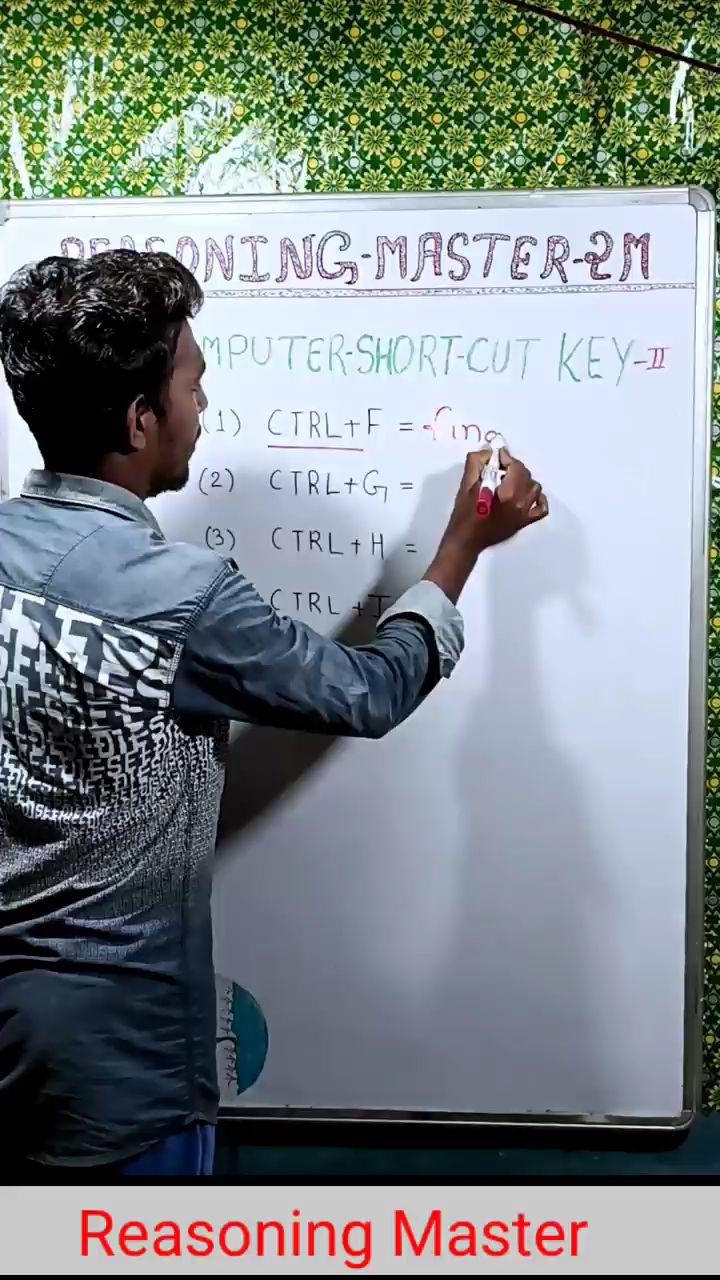 REASONING-MASTER-2M
MPUTER-SHORT-CUT KEY-II
(1) CTRL+F = fin
(2) CTRL+G =
(3) CTRL+H =
CTRL+I
Reasoning Master